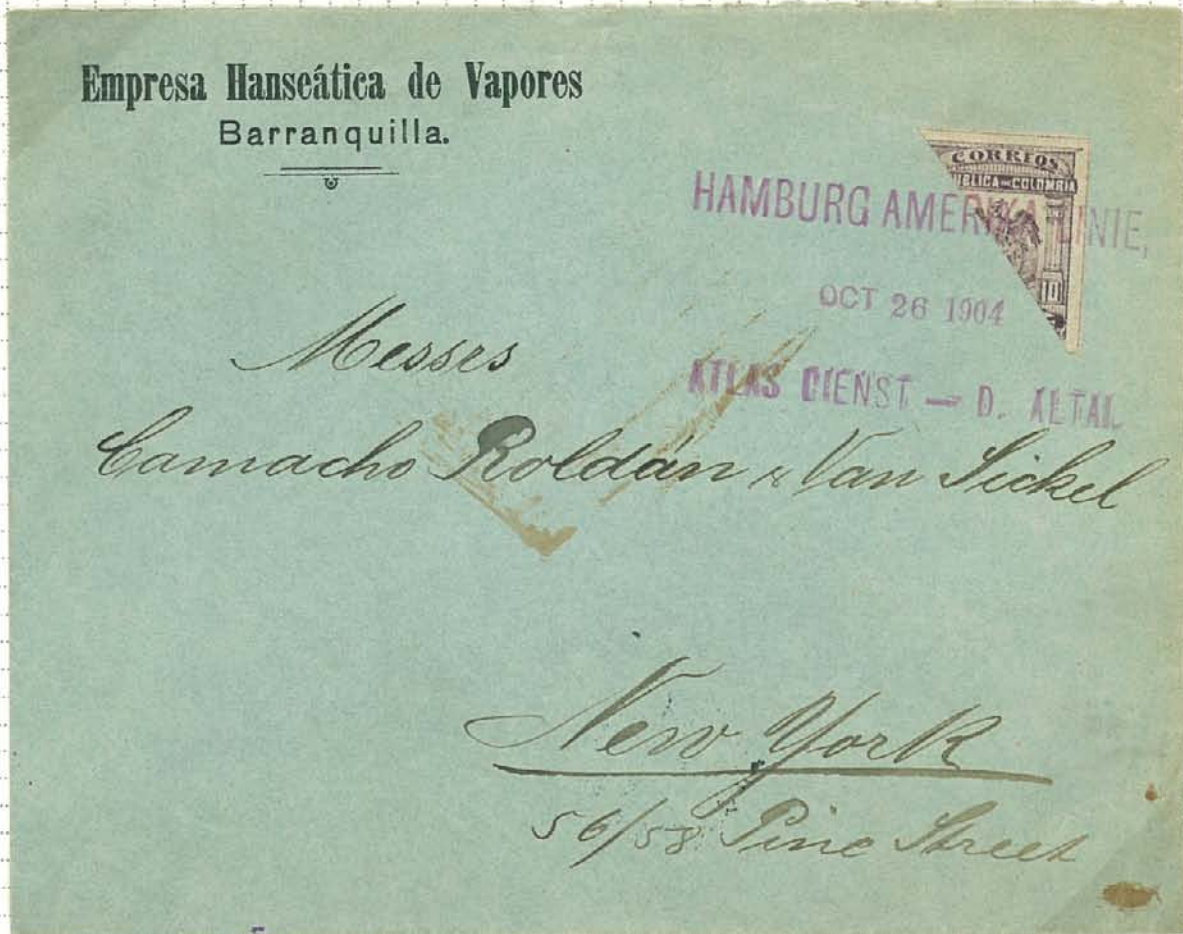 Empresa Hanseática de Vapores
Barranquilla.
CORREOS
PUBLICA DE COLOMBIA
10
HAMBURG AMERIKA LINIE,
OCT 26 1904
ATLAS DIENST — D. ALTAI.
Messrs
Camacho Roldán & Van Sickel
New York
56/58 Pine Street